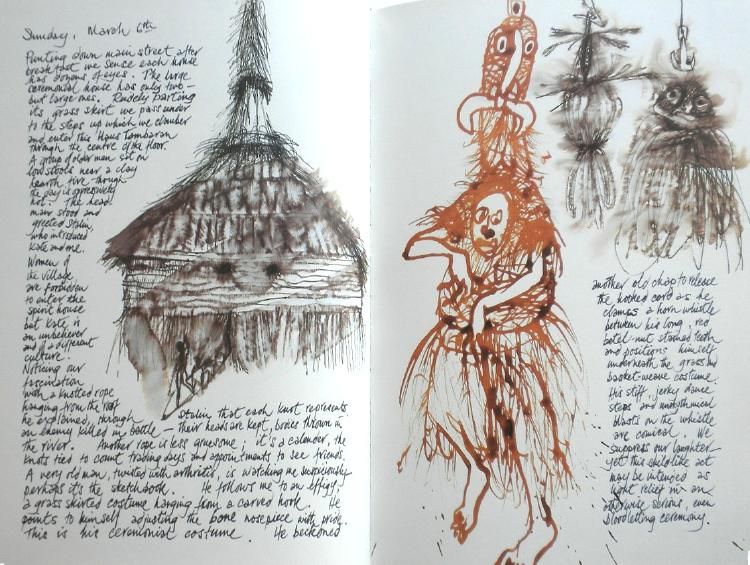 Sunday, March 6th
Punting down main street after
breakfast we sense each house
has dozens of eyes. The large
ceremonial house has only two –
but large ones. Rudely parting
its grass skirt we pass under
to the steps up which we clamber
and enter this Haus Tambaran
through the centre of the floor.
A group of older men sit on
low stools near a clay
hearth fire though
the day is oppressively
hot. The head
man stood and
greeted Stalin,
who introduced
Kate and me.
Women of
the village
are forbidden
to enter the
spirit house
but Kate is
an unbeliever
and of a different
culture.
Noticing our
fascination
with a knotted rope
hanging from the roof
he explained, through
Stalin that each knot represents
an enemy killed in battle – their heads are kept, bodies thrown in
the river. Another rope is less gruesome; it's a calendar, the
knots tied to count trading days and appointments to see friends.
A very old man, twisted with arthritis, is watching me suspiciously
perhaps it's the sketchbook. He follows me to an effigy,
a grass skirted costume hanging from a carved hook. He
points to himself adjusting the bone nosepiece with pride.
This is his ceremonial costume. He beckoned
another old chap to release
the hooked cord as he
clamps a horn whistle
between his long, red
betel-nut stained teeth
and positions himself
underneath the grass and
basket-weave costume.
His stiff, jerky dance
steps and unrhythmical
blasts on the whistle
are comical. We
suppress our laughter –
yet this childlike act
may be intended as
light relief in an
otherwise serious, even
bloodletting ceremony.